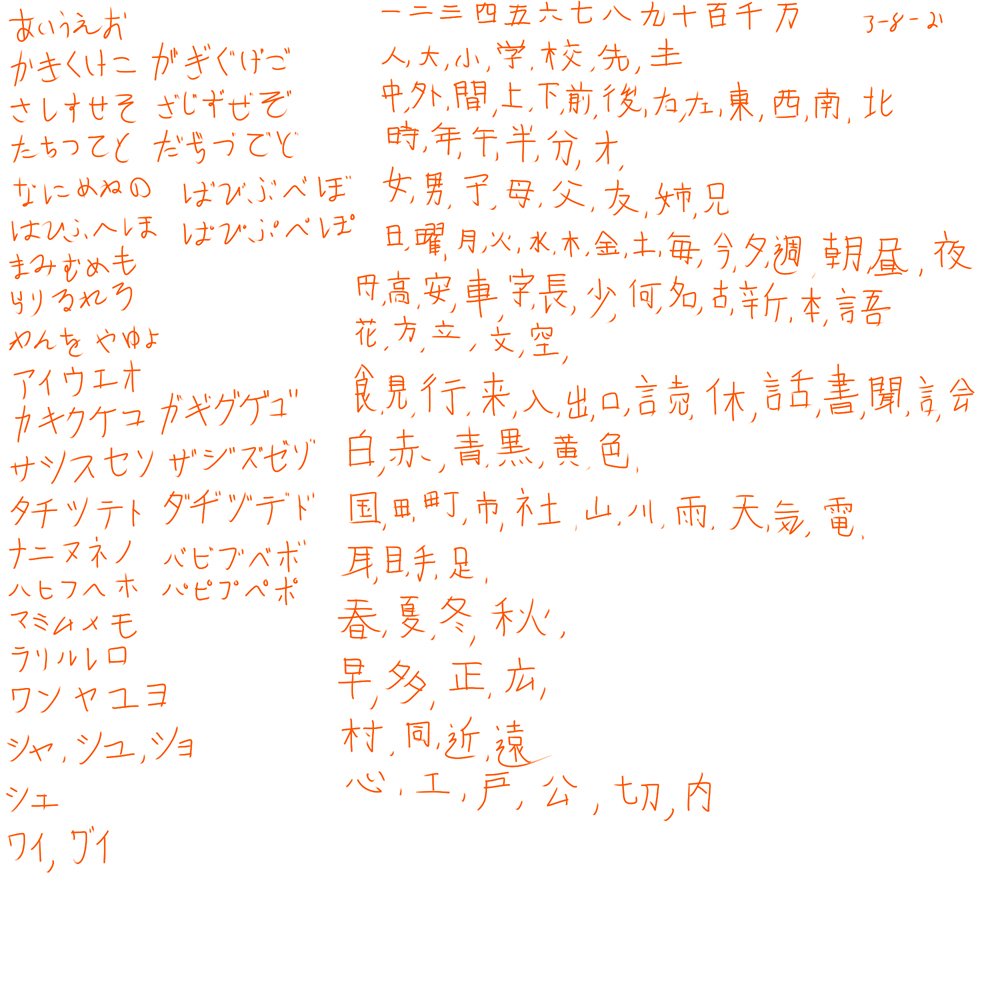 あいうえお
かきくけこ がぎぐげご
さしすせそ ざじずぜぞ
たちつてと だぢづでど
なにぬねの ばびぶべぼ
はひふへほ ぱぴぷぺぽ
まみむめも
らりるれろ
わんを やゆよ
アイウエオ
カキクケコ ガギグゲゴ
サシスセソ ザジズゼゾ
タチツテト ダヂヅデド
ナニヌネノ バビブベボ
ハヒフヘホ パピプペポ
マミムメモ
ラリルレロ
ワンヤユヨ
シャ,シュ,ショ
シェ
ワイ,グイ
一二三四五六七八九十百千万 3-8-21
人,大,小,学,校,先,生
中,外,間,上,下,前,後,右,左,東,西,南,北
時,年,午,半,分,才,
女,男,子,母,父,友,姉,兄
日,曜,月,火,水,木,金,土,毎,今,夕,週,朝,昼,夜
円,高,安,車,字,長,少,何,名,古,新,本,語
花,方,立,文,空,
食,見,行,来,入,出,口,言,読,休,話,書,聞,言,会
白,赤,青,黒,黄,色,
国,田,町,市,社,山,川,雨,天,気,電,
耳,目,手,足,
春,夏,冬,秋,
早,多,正,広,
村,同,近,遠
心,工,戸,公,切,内